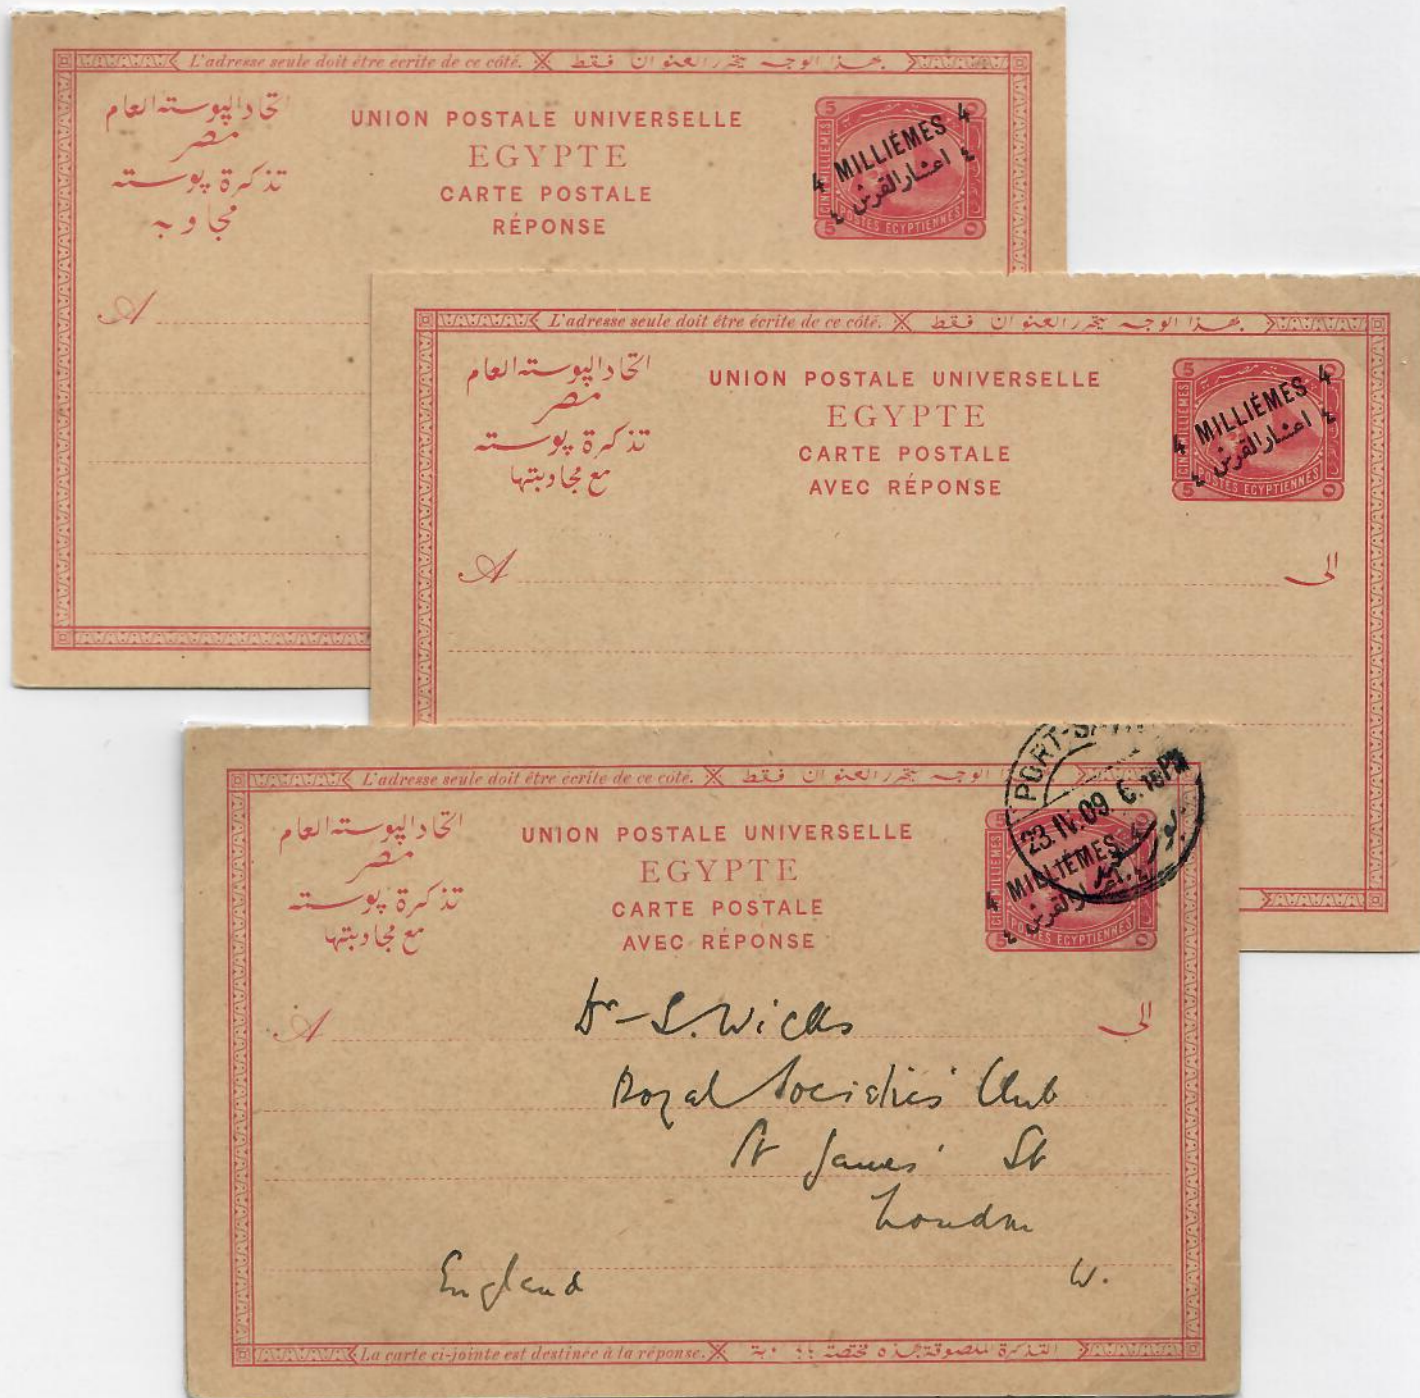 L'adresse seule doit être écrite de ce côté. بهذا الوجه يحرر العنوان فقط
اتحاد البوسته العام
مصر
تذكرة بوسته
مجاوبه
UNION POSTALE UNIVERSELLE
EGYPTE
CARTE POSTALE
RÉPONSE
5
CINQ MILLIÈMES
4 MILLIÉMES 4
٤ اعشار القرش ٤
POSTES EGYPTIENNES
5
A
L'adresse seule doit être écrite de ce côté. بهذا الوجه يحرر العنوان فقط
اتحاد البوسته العام
مصر
تذكرة بوسته
مع مجاوبتها
UNION POSTALE UNIVERSELLE
EGYPTE
CARTE POSTALE
AVEC RÉPONSE
5
CINQ MILLIÈMES
4 MILLIÉMES 4
٤ اعشار القرش ٤
POSTES EGYPTIENNES
5 ٥
A الى
L'adresse seule doit être écrite de ce côté. الوجه يحرر العنوان فقط
اتحاد البوسته العام
مصر
تذكرة بوسته
مع مجاوبتها
UNION POSTALE UNIVERSELLE
EGYPTE
CARTE POSTALE
AVEC RÉPONSE
PORT-SAID
23.IV.09. 6.15PM
بور سعيد
4 MILLIÉMES 4
٤ اعشار القرش ٤
POSTES EGYPTIENNES
5 ٥
A الى
Dr - S. Wicks
Royal Societies' Club
St James' St
London
England W.
La carte ci-jointe est destinée à la réponse. التذكرة الملصوقة بهذه مختصة